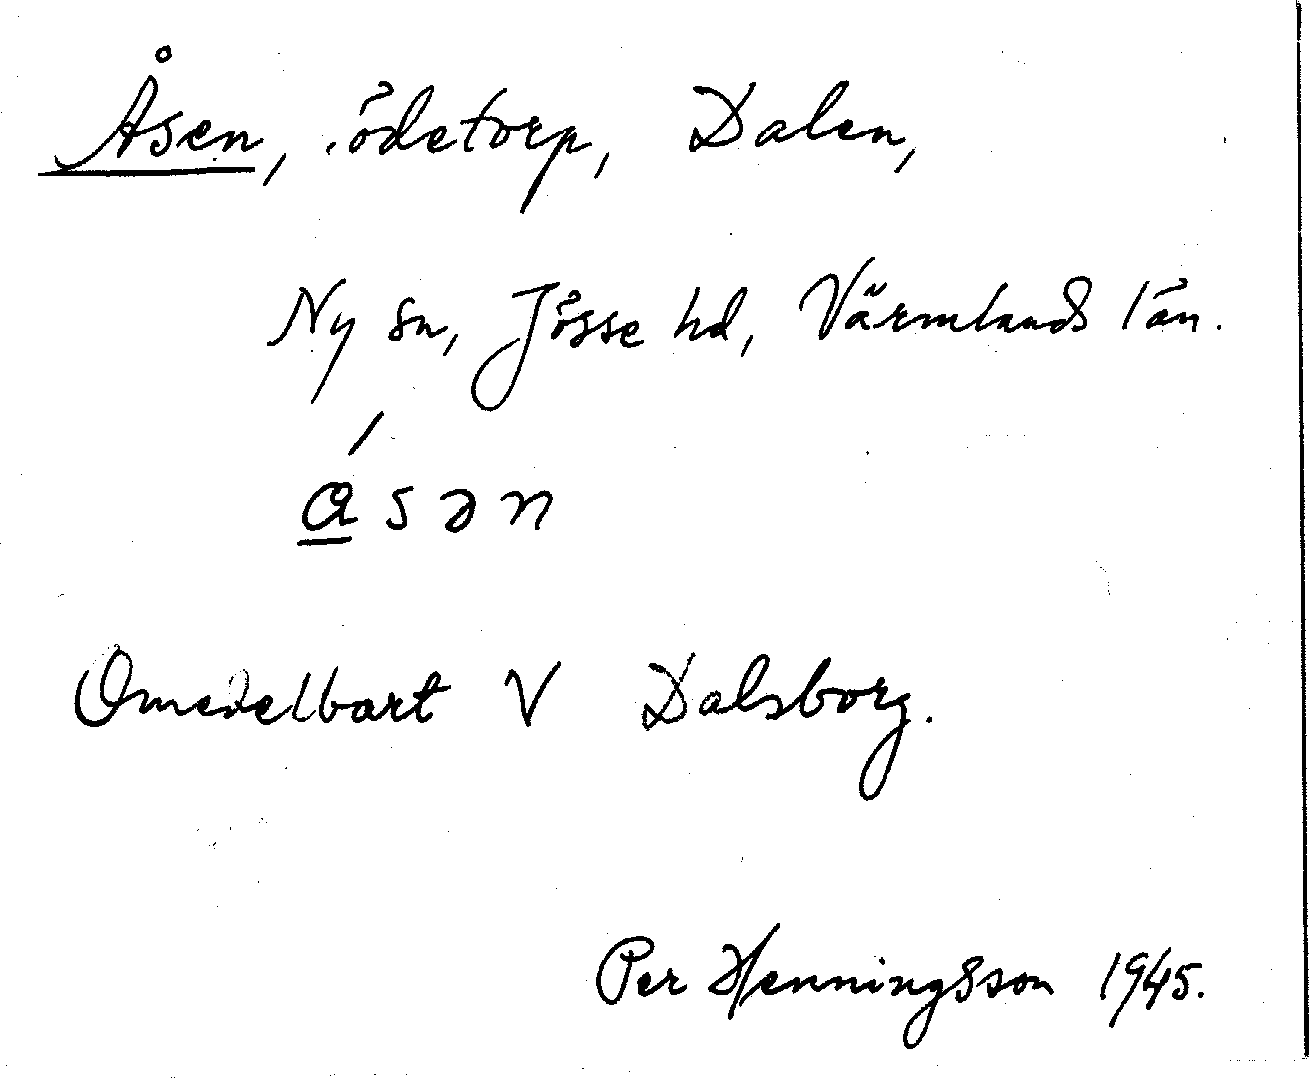 Åsen, ödetorp, Dalen,
Ny sn, Jösse hd, Värmlands län.
åsən
Omedelbart V Dalsborg.
Per Henningsson 1945.